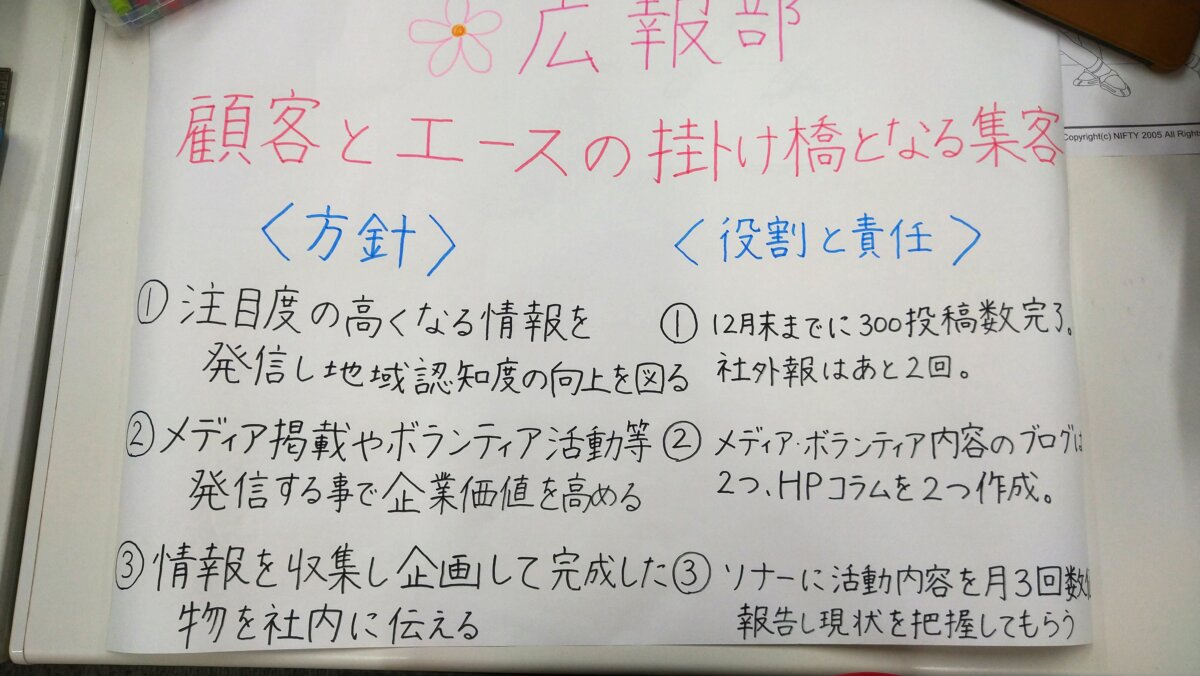 広報部
顧客とエースの掛け橋となる集客
〈方針〉
① 注目度の高くなる情報を
発信し地域認知度の向上を図る
② メディア掲載やボランティア活動等
発信する事で企業価値を高める
③ 情報を収集し企画して完成した
物を社内に伝える
〈役割と責任〉
① 12月末までに300投稿数完了。
社外報はあと2回。
② メディア・ボランティア内容のブログは
2つ、HPコラムを2つ作成。
③ ソナーに活動内容を月3回数値
報告し現状を把握してもらう
Copyright(c) NIFTY 2005 All Rights